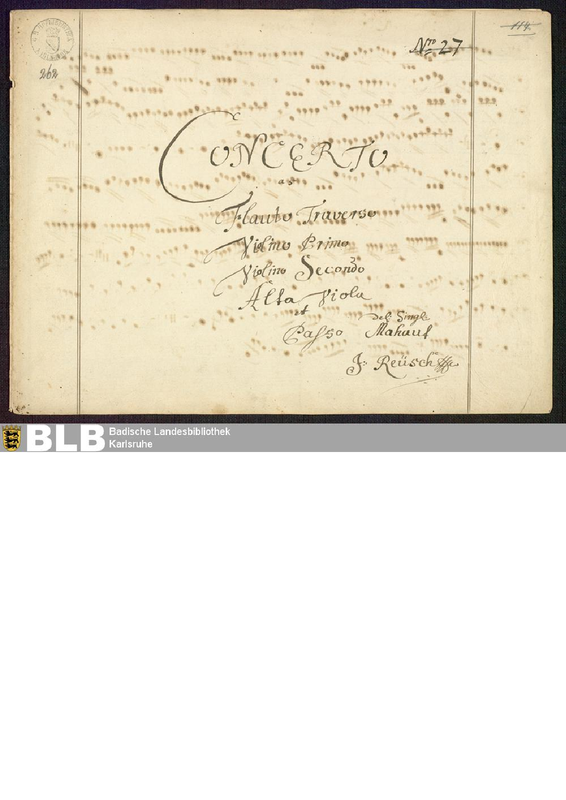 Nro 27
114.
262
CONCERTO
a 5
Flauto Traverso
Violino Primo
Violino Secondo
Alta Viola
et
Passo
Del Singl:
Mahaut
J: Reüsch
BLB Badische Landesbibliothek
Karlsruhe